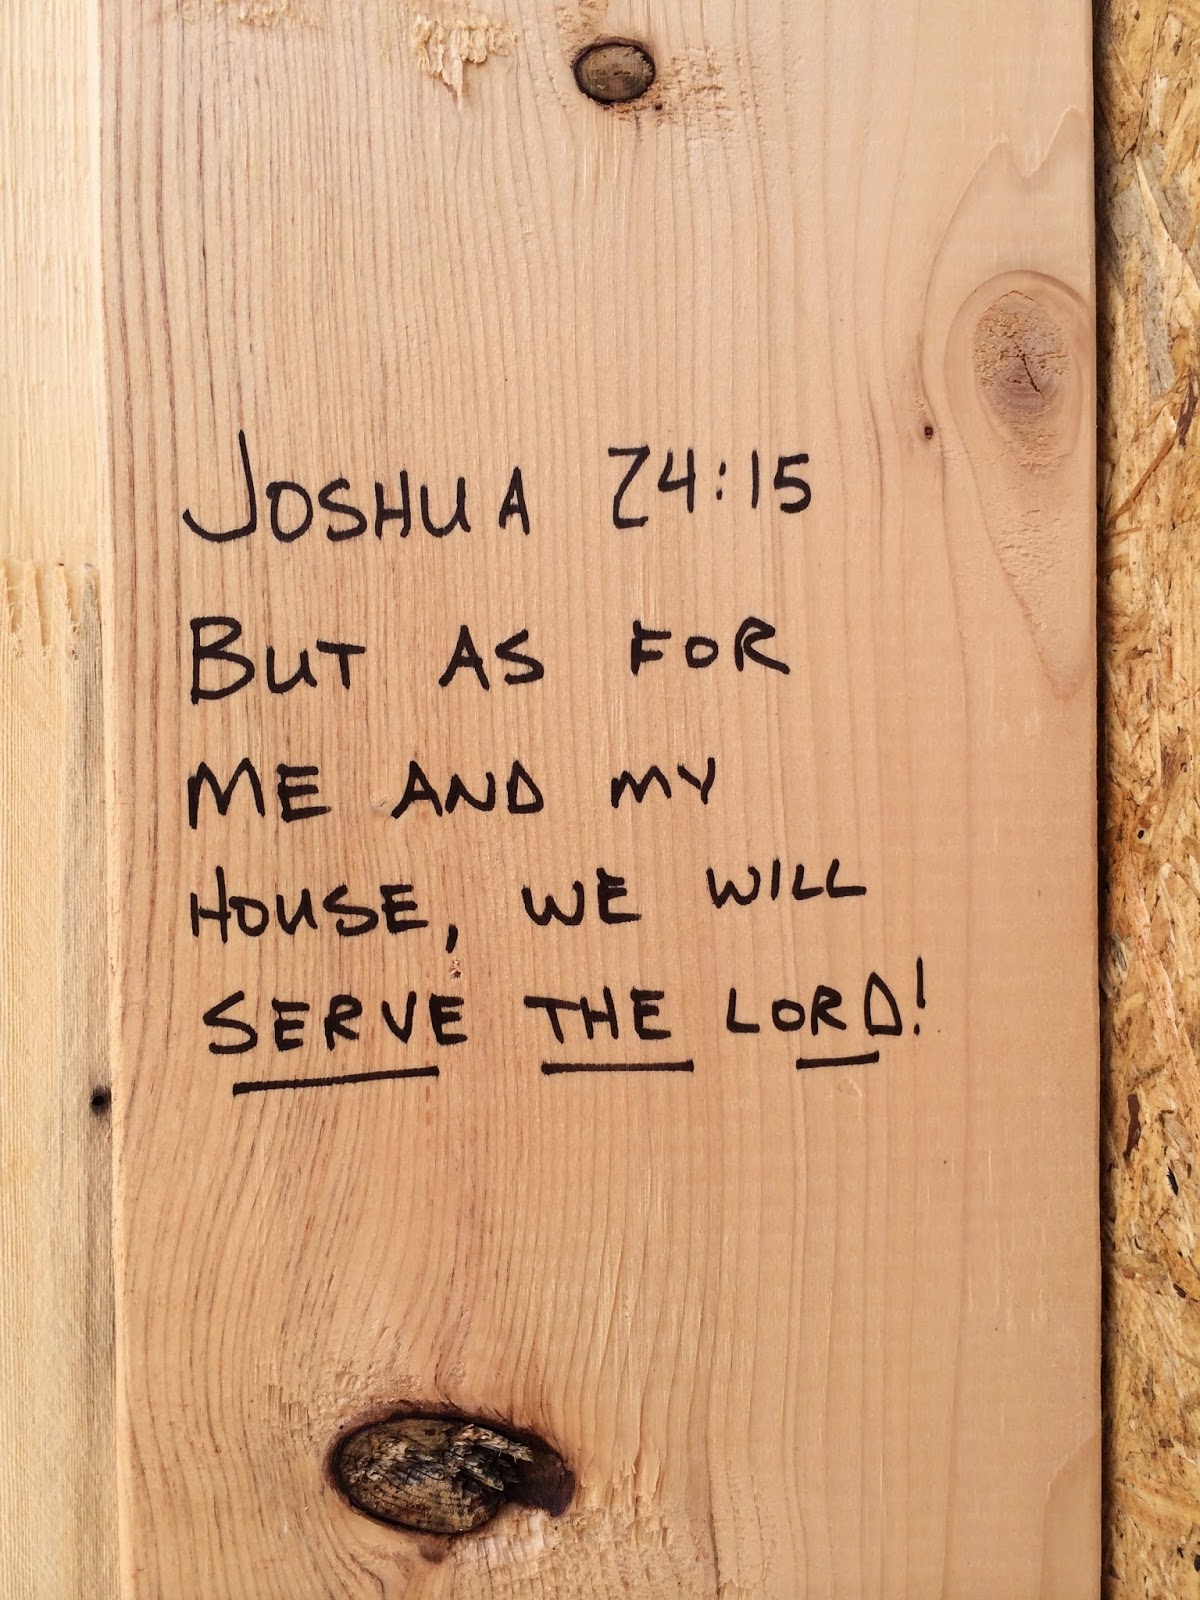 JOSHUA 24:15
BUT AS FOR
ME AND MY
HOUSE, WE WILL
SERVE THE LORD!